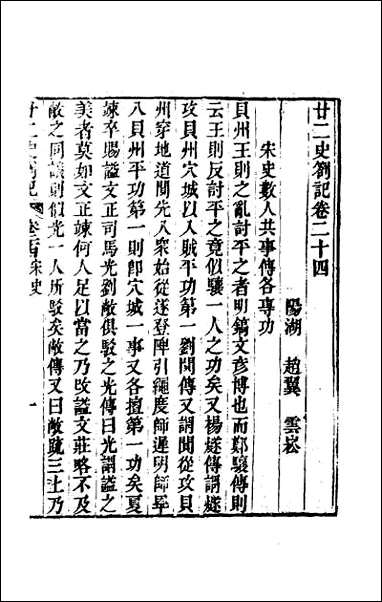 廿二史劄記卷二十四
陽湖 趙翼 雲崧
宋史數人共事傳各專功
貝州王則之亂討平之者明鎬文彥博也而鄭驤傳則
云王則反討平之竟似驤一人之功矣又楊燧傳謂燧
攻貝州穴城以入賊平功第一劉闐傳又謂闐從攻貝
州穿地道闐先入衆始從遂登陴引繩度師遲明師畢
入貝州平功第一則卽穴城一事又各擅第一功矣夏
竦卒賜諡文正司馬光劉敞俱駁之光傳曰光謂諡之
美者莫如文正竦何人足以當之乃改諡文莊略不及
敞之同議則似光一人所駁矣敞傳又曰敞疏三上乃
廿二史劄記 卷二十四 宋史 一